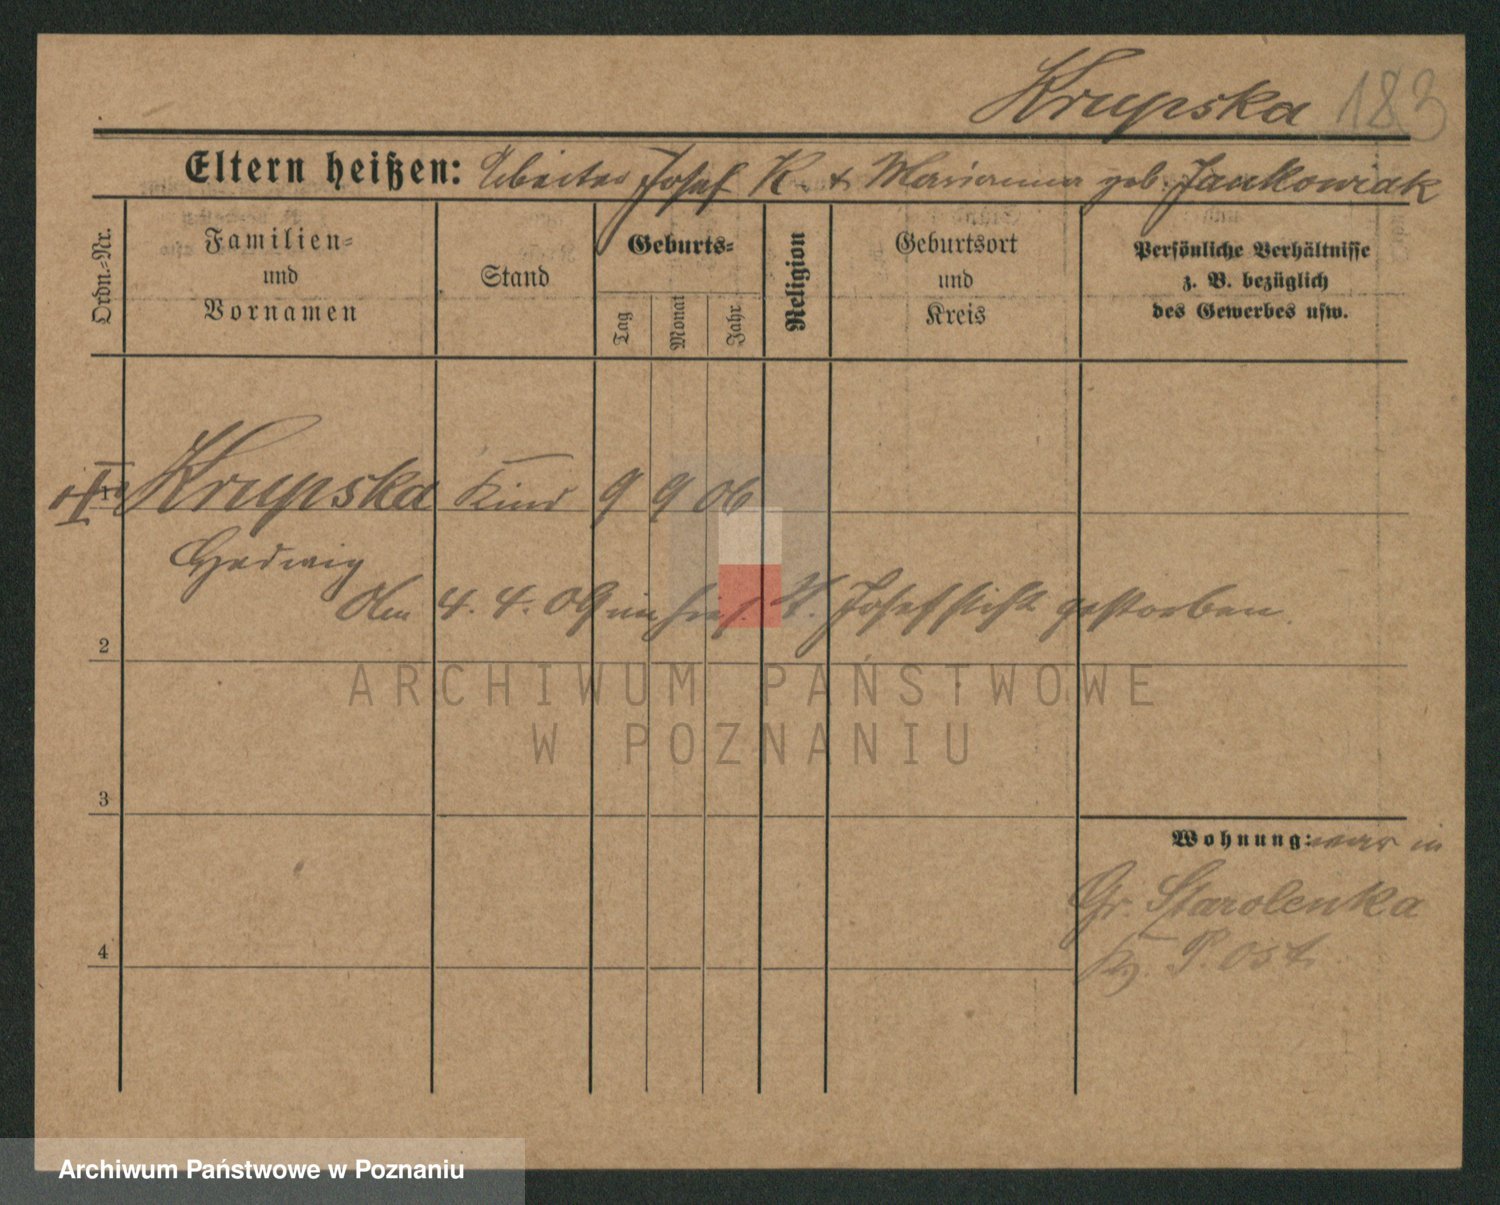 Krupska 183
Eltern heißen: Arbeiter Josef K. + Marianna geb. Jankowiak
Ordn.=Nr.
Familien=
und
Vornamen
Stand
Geburts=
Tag
Monat
Jahr
Religion
Geburtsort
und
Kreis
Persönliche Verhältnisse
z. B. bezüglich
des Gewerbes usw.
1 Krupska Kind 9 9 06
Hedwig
Am 4. 4. 09 im hies. St. Josefstift gestorben.
2
ARCHIWUM PAŃSTWOWE
W POZNANIU
3
Wohnung: war in
Gr. Starolenka
Kr. P. Ost.
4
Archiwum Państwowe w Poznaniu